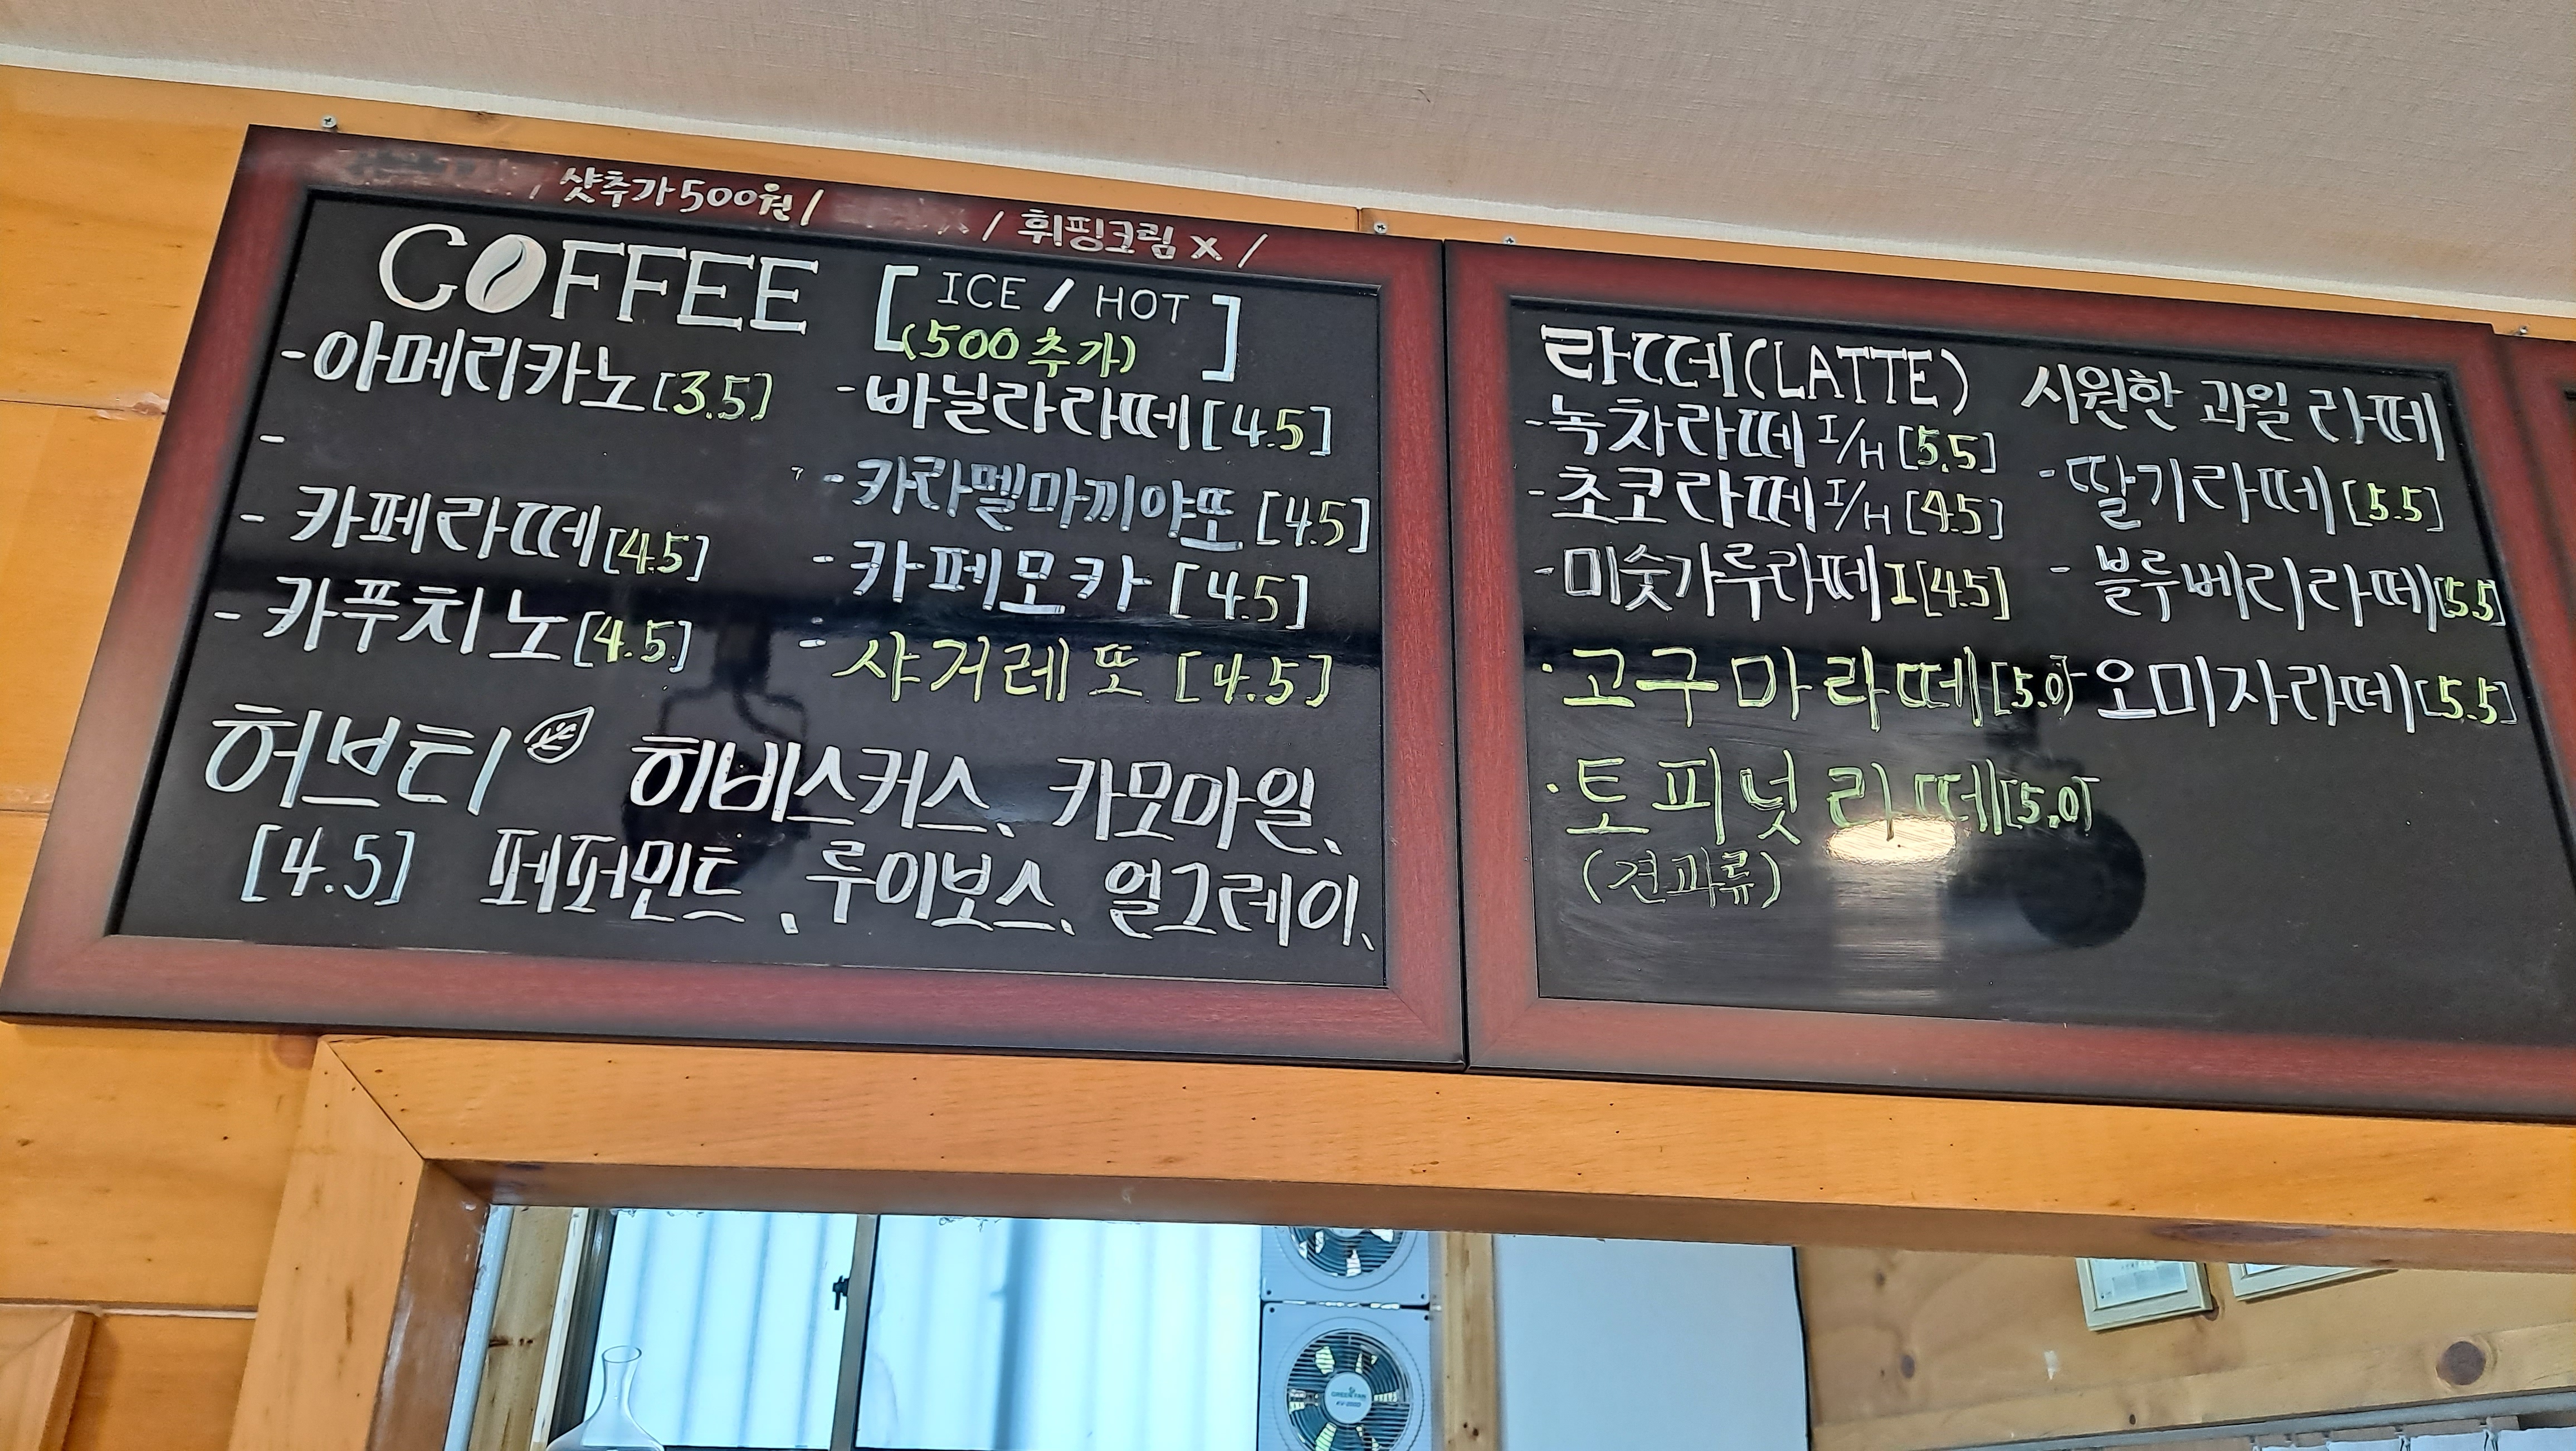 / 샷추가 500원 / / 휘핑크림 x /
COFFEE [ICE / HOT]
(500 추가)
- 아메리카노 [3.5]
-
- 카페라떼 [4.5]
- 카푸치노 [4.5]
- 바닐라라떼 [4.5]
- 카라멜마끼야또 [4.5]
- 카페모카 [4.5]
- 샤거레또 [4.5]
허브티 히비스커스, 카모마일,
[4.5] 페퍼민트, 루이보스, 얼그레이,
라떼(LATTE)
- 녹차라떼 I/H [5.5]
- 초코라떼 I/H [4.5]
- 미숫가루라떼 I [4.5]
· 고구마라떼 [5.0]
· 토피넛라떼 [5.0]
(견과류)
시원한 과일 라떼
- 딸기라떼 [5.5]
- 블루베리라떼 [5.5]
- 오미자라떼 [5.5]
GREEN FAN